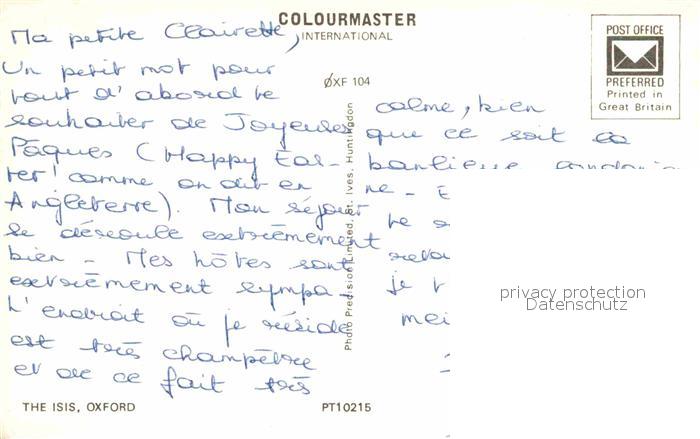 COLOURMASTER
INTERNATIONAL
POST OFFICE
PREFERRED
Printed in
Great Britain
ØXF 104
Ma petite Clairette,
Un petit mot pour
tout d'abord te
souhaiter de Joyeuses
Pâques (Happy Eas-
ter' comme on dit en
Angleterre). Mon séjour
se déroule extrêmement
bien - Mes hôtes sont
extrêmement sympa -
L'endroit où je réside
est très champêtre
et de ce fait très
calme, bien
que ce soit la
banlieue
ne -
te
je
mei
Photo Precision Limited, St. Ives, Huntingdon
privacy protection
Datenschutz
THE ISIS, OXFORD
PT10215